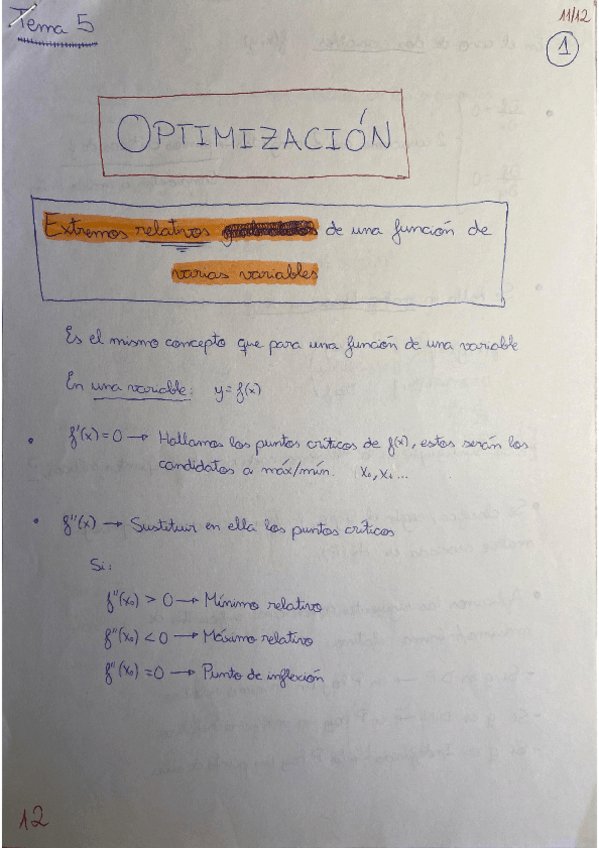 Tema 5
11/12
1
OPTIMIZACIÓN
Extremos relativos de una función de
varias variables
Es el mismo concepto que para una función de una variable
En una variable: y = f(x)
• f'(x) = 0 → Hallamos los puntos críticos de f(x), estos serán los
candidatos a máx/mín. x₀, x₁ ...
• f''(x) → Sustituir en ella los puntos críticos
Si:
f''(x₀) > 0 → Mínimo relativo
f''(x₀) < 0 → Máximo relativo
f''(x₀) = 0 → Punto de inflexión
12